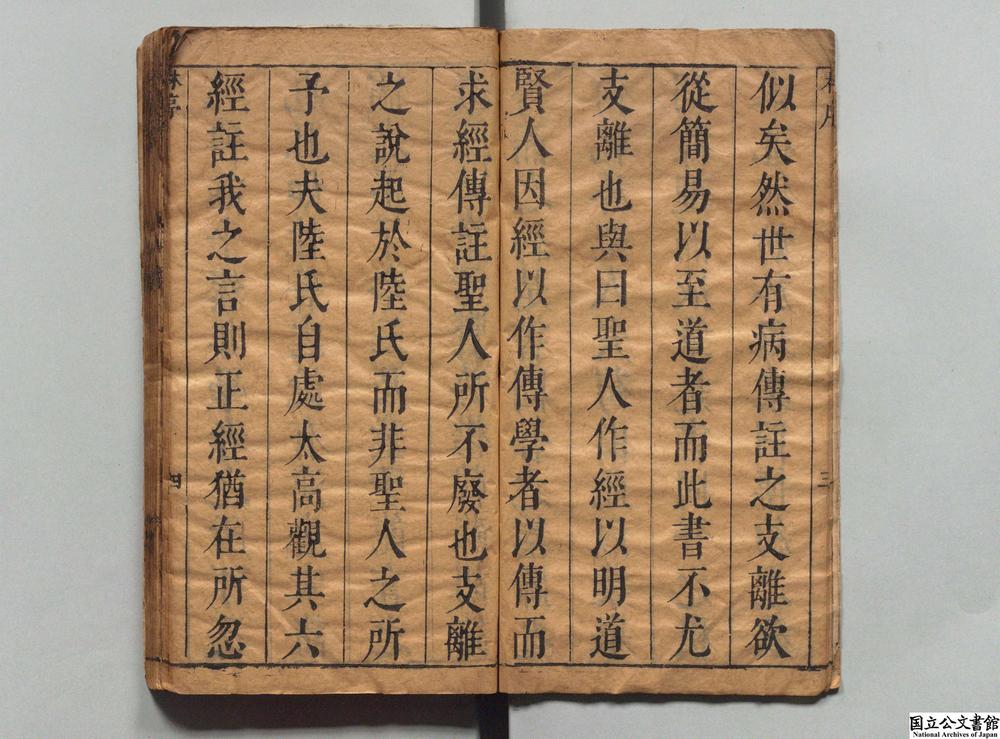 似矣然世有病傳註之支離欲
從簡易以至道者而此書不尤
支離也與曰聖人作經以明道
賢人因經以作傳學者以傳而
求經傳註聖人所不廢也支離
之說起於陸氏而非聖人之所
予也夫陸氏自處太高觀其六
經註我之言則正經猶在所忽
四
国立公文書館
National Archives of Japan